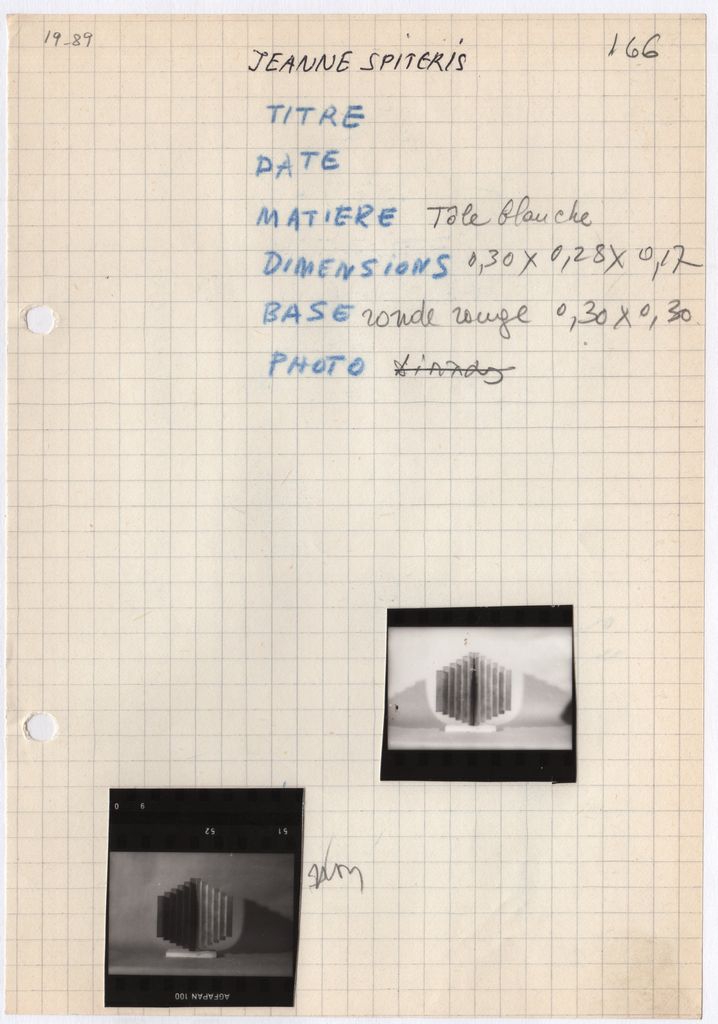 19-89
166
JEANNE SPITERIS
TITRE
DATE
MATIERE Tôle blanche
DIMENSIONS 0,30 X 0,28 X 0,17
BASE ronde rouge 0,30 X 0,30
PHOTO
0 9
52 51
AGFAPAN 100